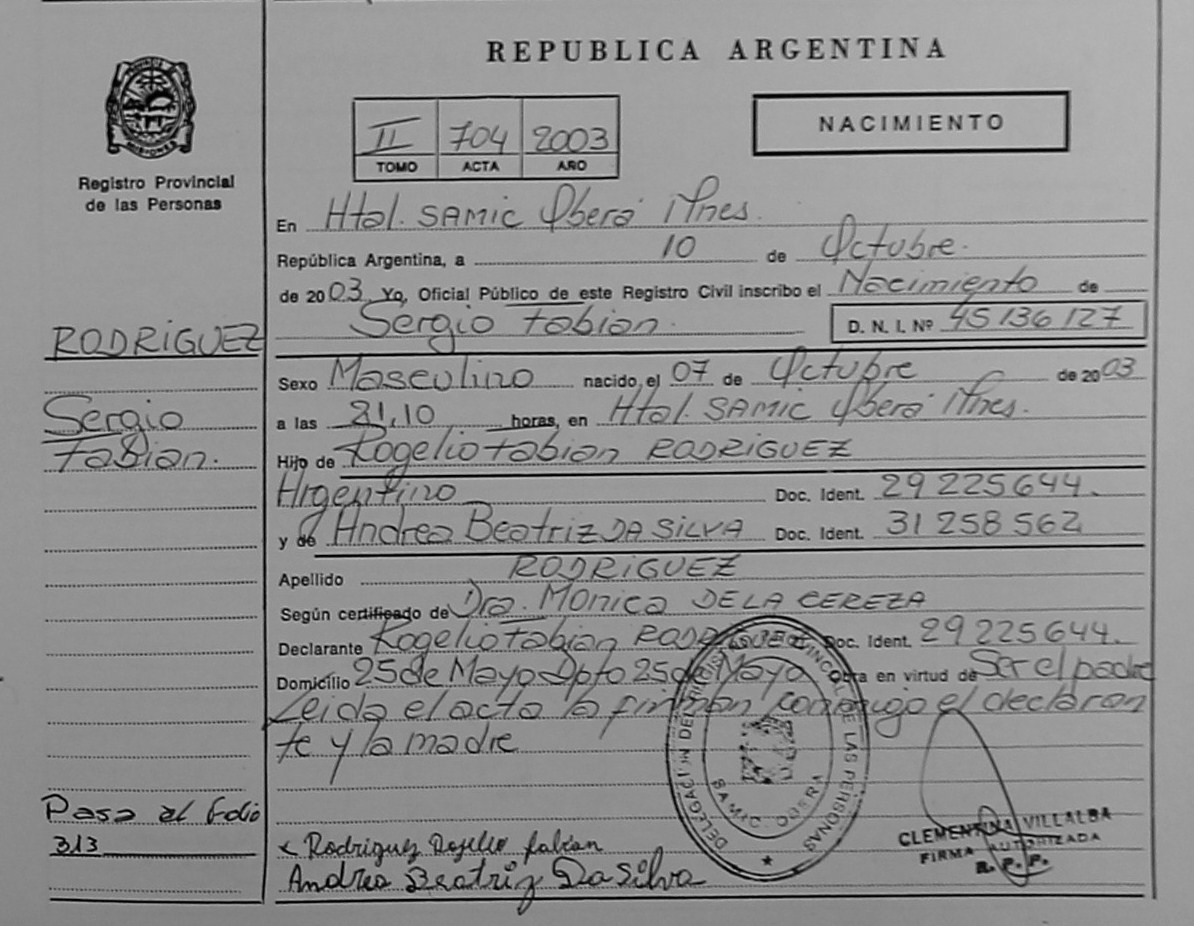 REPUBLICA ARGENTINA
MISIONES
Registro Provincial
de las Personas
II 704 2003
TOMO ACTA AÑO
NACIMIENTO
En Htal. SAMIC Oberá Mnes.
República Argentina, a 10 de Octubre.
de 2003 Yo, Oficial Público de este Registro Civil inscribo el Nacimiento de
Sergio Fabian. D. N. I. Nº 45136127
RODRIGUEZ
Sergio
Fabian.
Sexo Masculino nacido, el 07 de Octubre de 2003
a las 21,10 horas, en Htal. SAMIC Oberá Mnes.
Hijo de Rogelio Fabian RODRIGUEZ
Argentino Doc. Ident. 29225644.
y de Andrea Beatriz DA SILVA Doc. Ident. 31258562
Apellido RODRIGUEZ
Según certificado de Dra. Monica DE LA CEREZA
Declarante Rogelio Fabian RODRIGUEZ Doc. Ident. 29225644.
Domicilio 25 de Mayo Dpto 25 de Mayo Obra en virtud de Ser el padre
Leida el acta la firman conmigo el declaran
te y la madre
Pasa al folio
313
DELEGACION DEL REGISTRO PROVINCIAL DE LAS PERSONAS
SAMIC OBERA
CLEMENTINA VILLALBA
FIRMA AUTORIZADA
R. P. P.
Rodriguez Rogelio fabian
Andrea Beatriz Da Silva